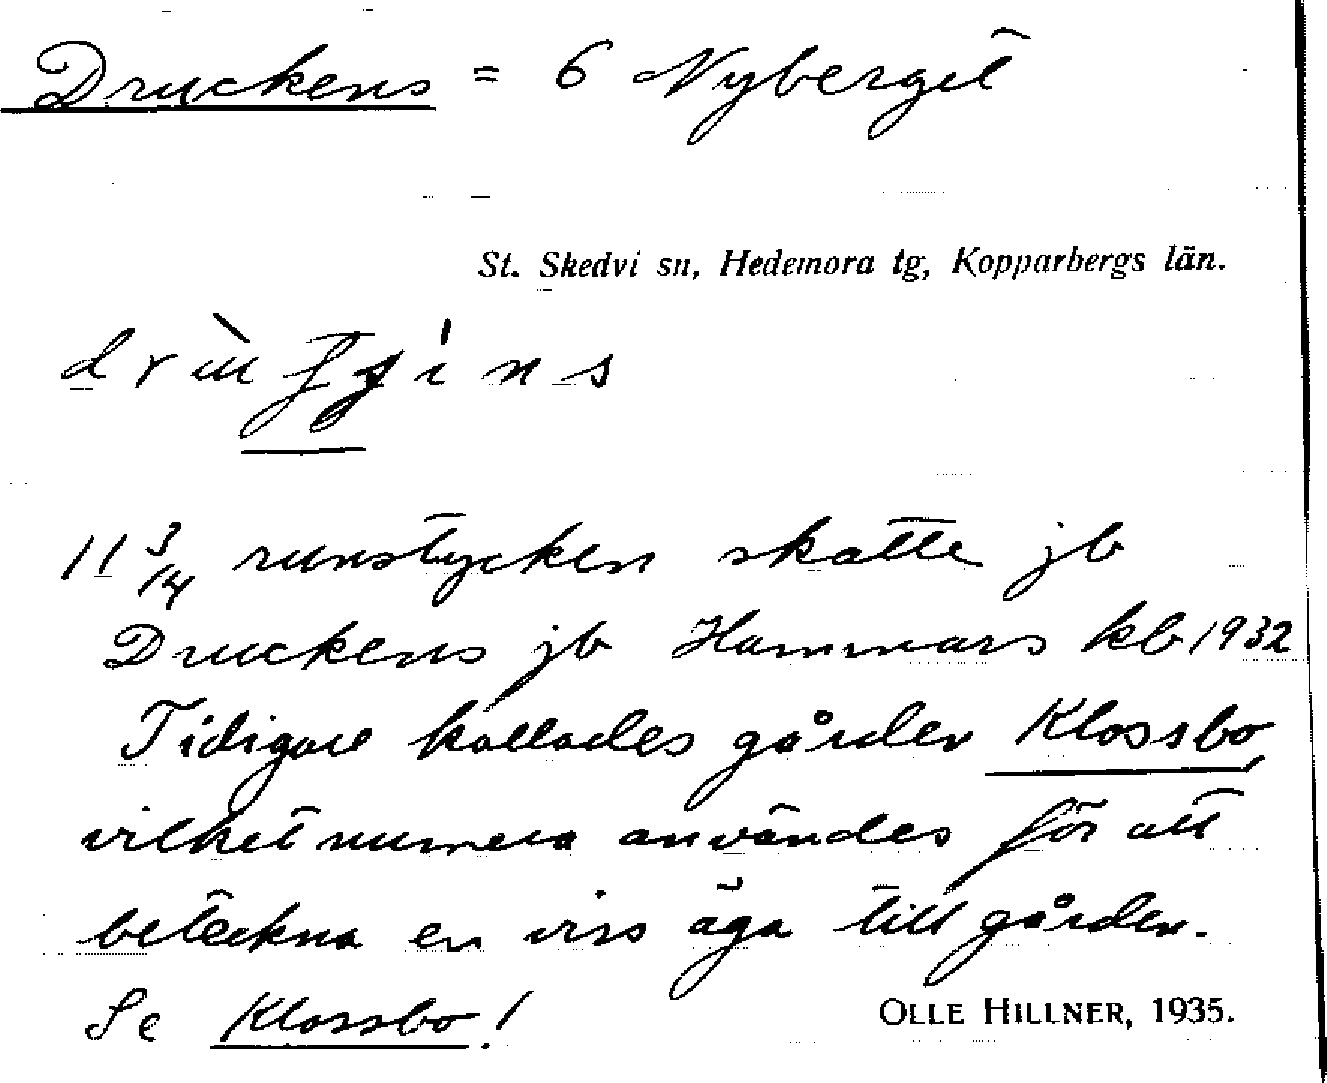 Druckens = 6 Nyberget
St. Skedvi sn, Hedemora tg, Kopparbergs län.
11 3/14 runstycken skatte jb
Druckens jb Hammars kb 1932
Tidigare kallades gården Klossbo,
vilket numera användes för att
beteckna en viss äga till gården.
Se Klossbo!
OLLE HILLNER, 1935.